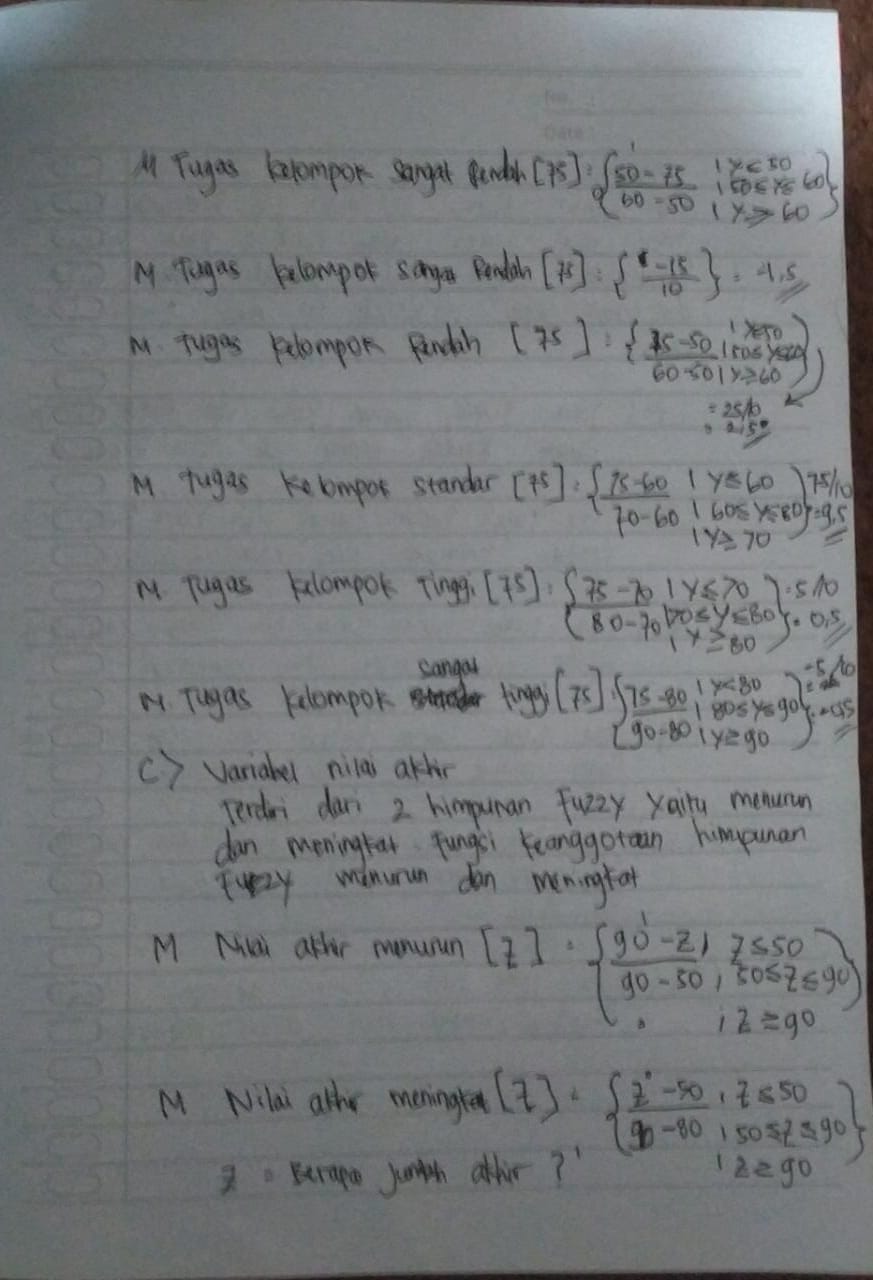 No. :
Date :
M Tugas kelompok Sangat Rendah [75] = { 1 , Y ≤ 50
50 - 75 / 60 - 50 , 50 ≤ Y ≤ 60
0 , Y ≥ 60 }
M Tugas kelompok Sangat Rendah [75] = { -15 / 10 } = -1,5
M Tugas kelompok Rendah [75] = { 75-50 / 60-50 , Y≤50
, 50≤Y≤60
, Y≥60 }
= 25/10
= 2,5
M Tugas kelompok standar [75] = { 75-60 / 70-60 , Y≤60 } 75/10
, 60≤Y≤80 } = 9,5
, Y≥70
M Tugas kelompok Tinggi [75] = { 75-70 / 80-70 , Y≤70 } = 5/10
, 70≤Y≤80 } = 0,5
, Y≥80
sangat
M Tugas kelompok tinggi [75] { 75-80 / 90-80 , Y<80 } -5/10
, 80≤Y≤90 } = -0,5
, Y≥90
C> Variabel nilai akhir
Terdiri dari 2 himpunan Fuzzy Yaitu menurun
dan meningkat. Fungsi keanggotaan himpunan
Fuzzy menurun dan meningkat
M Nilai akhir menurun [Z] = { 1
90 - Z / 90 - 50 , Z ≤ 50
, 50≤Z≤90
0 , Z ≥ 90 }
M Nilai akhir meningkat [Z] = { 0
Z - 50 / 90 - 80 , Z ≤ 50
, 50≤Z≤90
1 , Z ≥ 90 }
Z = Berapa Jumlah akhir ?